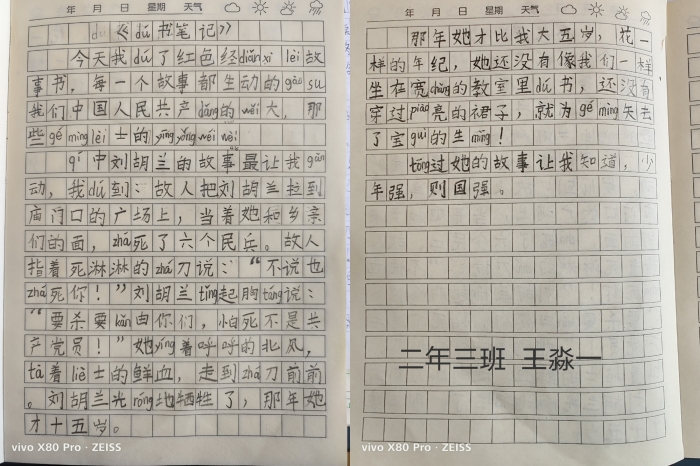 年 月 日 星期 天气
《dú书笔记》
今天我dú了红色经diǎn xì lèi故
事书，每一个故事都生动的gào su
我们中国人民共产dǎng的wěi大，那
些gé mìng lèi士的yīng yǒng wéi
qí中刘胡兰的故事最让我gǎn
动，我dú到：故人把刘胡兰拉到
庙门口的广场上，当着她和乡亲
们的面，zhá死了六个民兵。故人
指着死淋淋的zhá刀说："不说也
zhá死你！"刘胡兰tǐng起胸táng说：
"要杀要由你们，怕死不是共
产党员！"她yíng着呼呼的北风，
tà着liè士的鲜血，走到zhá刀前前
。刘胡兰光róng地牺牲了，那年她
才十五岁。
vivo X80 Pro · ZEISS
年 月 日 星期 天气
那年她才比我大五岁，花一
样的年纪，她还没有像我们一样
坐在宽chǎng的教室里dú书，还没有
穿过piào亮的裙子，就为gé mìng失去
了宝guì的生mìng！
tōng过她的故事让我知道，少
年强，则国强。
二年三班 王淼一
vivo X80 Pro · ZEISS